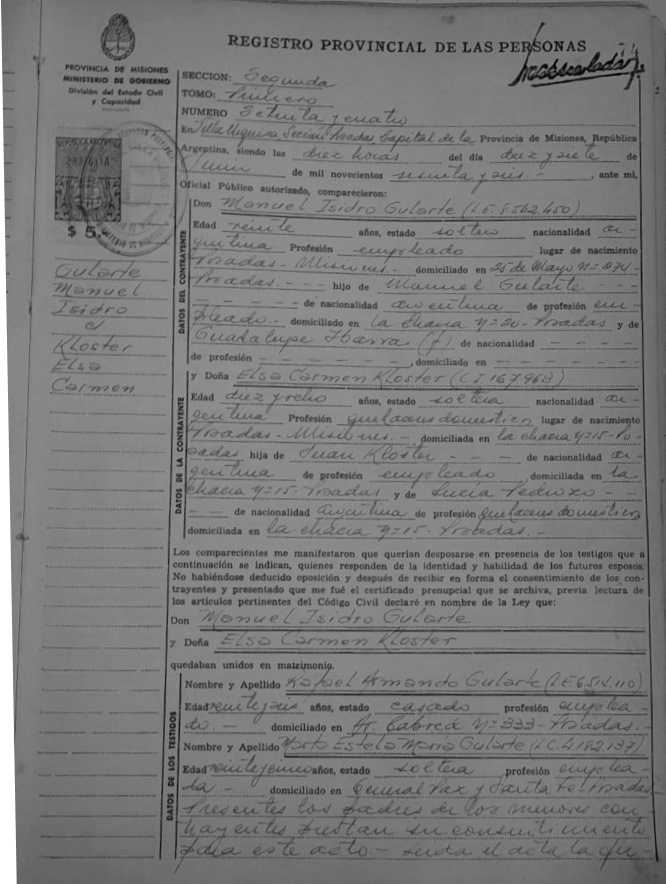 REGISTRO PROVINCIAL DE LAS PERSONAS
PROVINCIA DE MISIONES
MINISTERIO DE GOBIERNO
División del Estado Civil
y Capacidad
$ 5
Gularte
Manuel
Isidro
c/
Kloster
Elsa
Carmen
SECCION: Segunda
TOMO: Primero
NUMERO Setenta y cuatro
En Villa Urquiza, Sección Posadas, Capital de la Provincia de Misiones, República
Argentina, siendo las diez horas del día diez y siete de
Junio de mil novecientos sesenta y seis.- , ante mi,
Oficial Público autorizado, comparecieron:
DATOS DEL CONTRAYENTE
Don Manuel Isidro Gularte (L.E. 8.542.450)
Edad veinte años, estado soltero nacionalidad ar-
gentina Profesión empleado lugar de nacimiento
Posadas - Misiones.- domiciliado en 25 de Mayo Nº 274-
Posadas.- - - hijo de Manuel Gularte - - -
- - - - - de nacionalidad argentina de profesión em-
pleado.- domiciliado en la chacra Nº 20 - Posadas y de
Guadalupe Ibarra (f) de nacionalidad - - - -
de profesión - - - - - - , domiciliado en - - - - - -
DATOS DE LA CONTRAYENTE
y Doña Elsa Carmen Kloster (C.I. 167.963)
Edad diez y ocho años, estado soltera nacionalidad ar-
gentina Profesión quehaceres domésticos lugar de nacimiento
Posadas - Misiones.- , domiciliada en la chacra Nº 15 - Po-
sadas hija de Juan Kloster - - - de nacionalidad ar-
gentina de profesión empleado domiciliada en la
chacra Nº 15 - Posadas y de Lucía Pedrozo - -
- - de nacionalidad argentina de profesión quehaceres domésticos
domiciliada en la chacra Nº 15 - Posadas.-
Los comparecientes me manifestaron que querían desposarse en presencia de los testigos que a
continuación se indican, quienes responden de la identidad y habilidad de los futuros esposos.
No habiéndose deducido oposición y después de recibir en forma el consentimiento de los con-
trayentes y presentado que me fué el certificado prenupcial que se archiva, previa lectura de
los artículos pertinentes del Código Civil declaré en nombre de la Ley que:
Don Manuel Isidro Gularte
y Doña Elsa Carmen Kloster
quedaban unidos en matrimonio.
DATOS DE LOS TESTIGOS
Nombre y Apellido Rafael Armando Gularte (L.E.
Edad veintiseis años, estado casado profesión emplea-
do.- domiciliado en Cabred Nº 333 - Posadas.-
Nombre y Apellido Marta Estela Maria Gularte (L.C. 4.182.137)
Edad años, estado soltera profesión emplea-
da.- domiciliado en General Paz y Santa Fe Posadas
Presentes los padres de los menores con-
trayentes prestan su consentimiento
para este acto.- Leida el acta la fir-